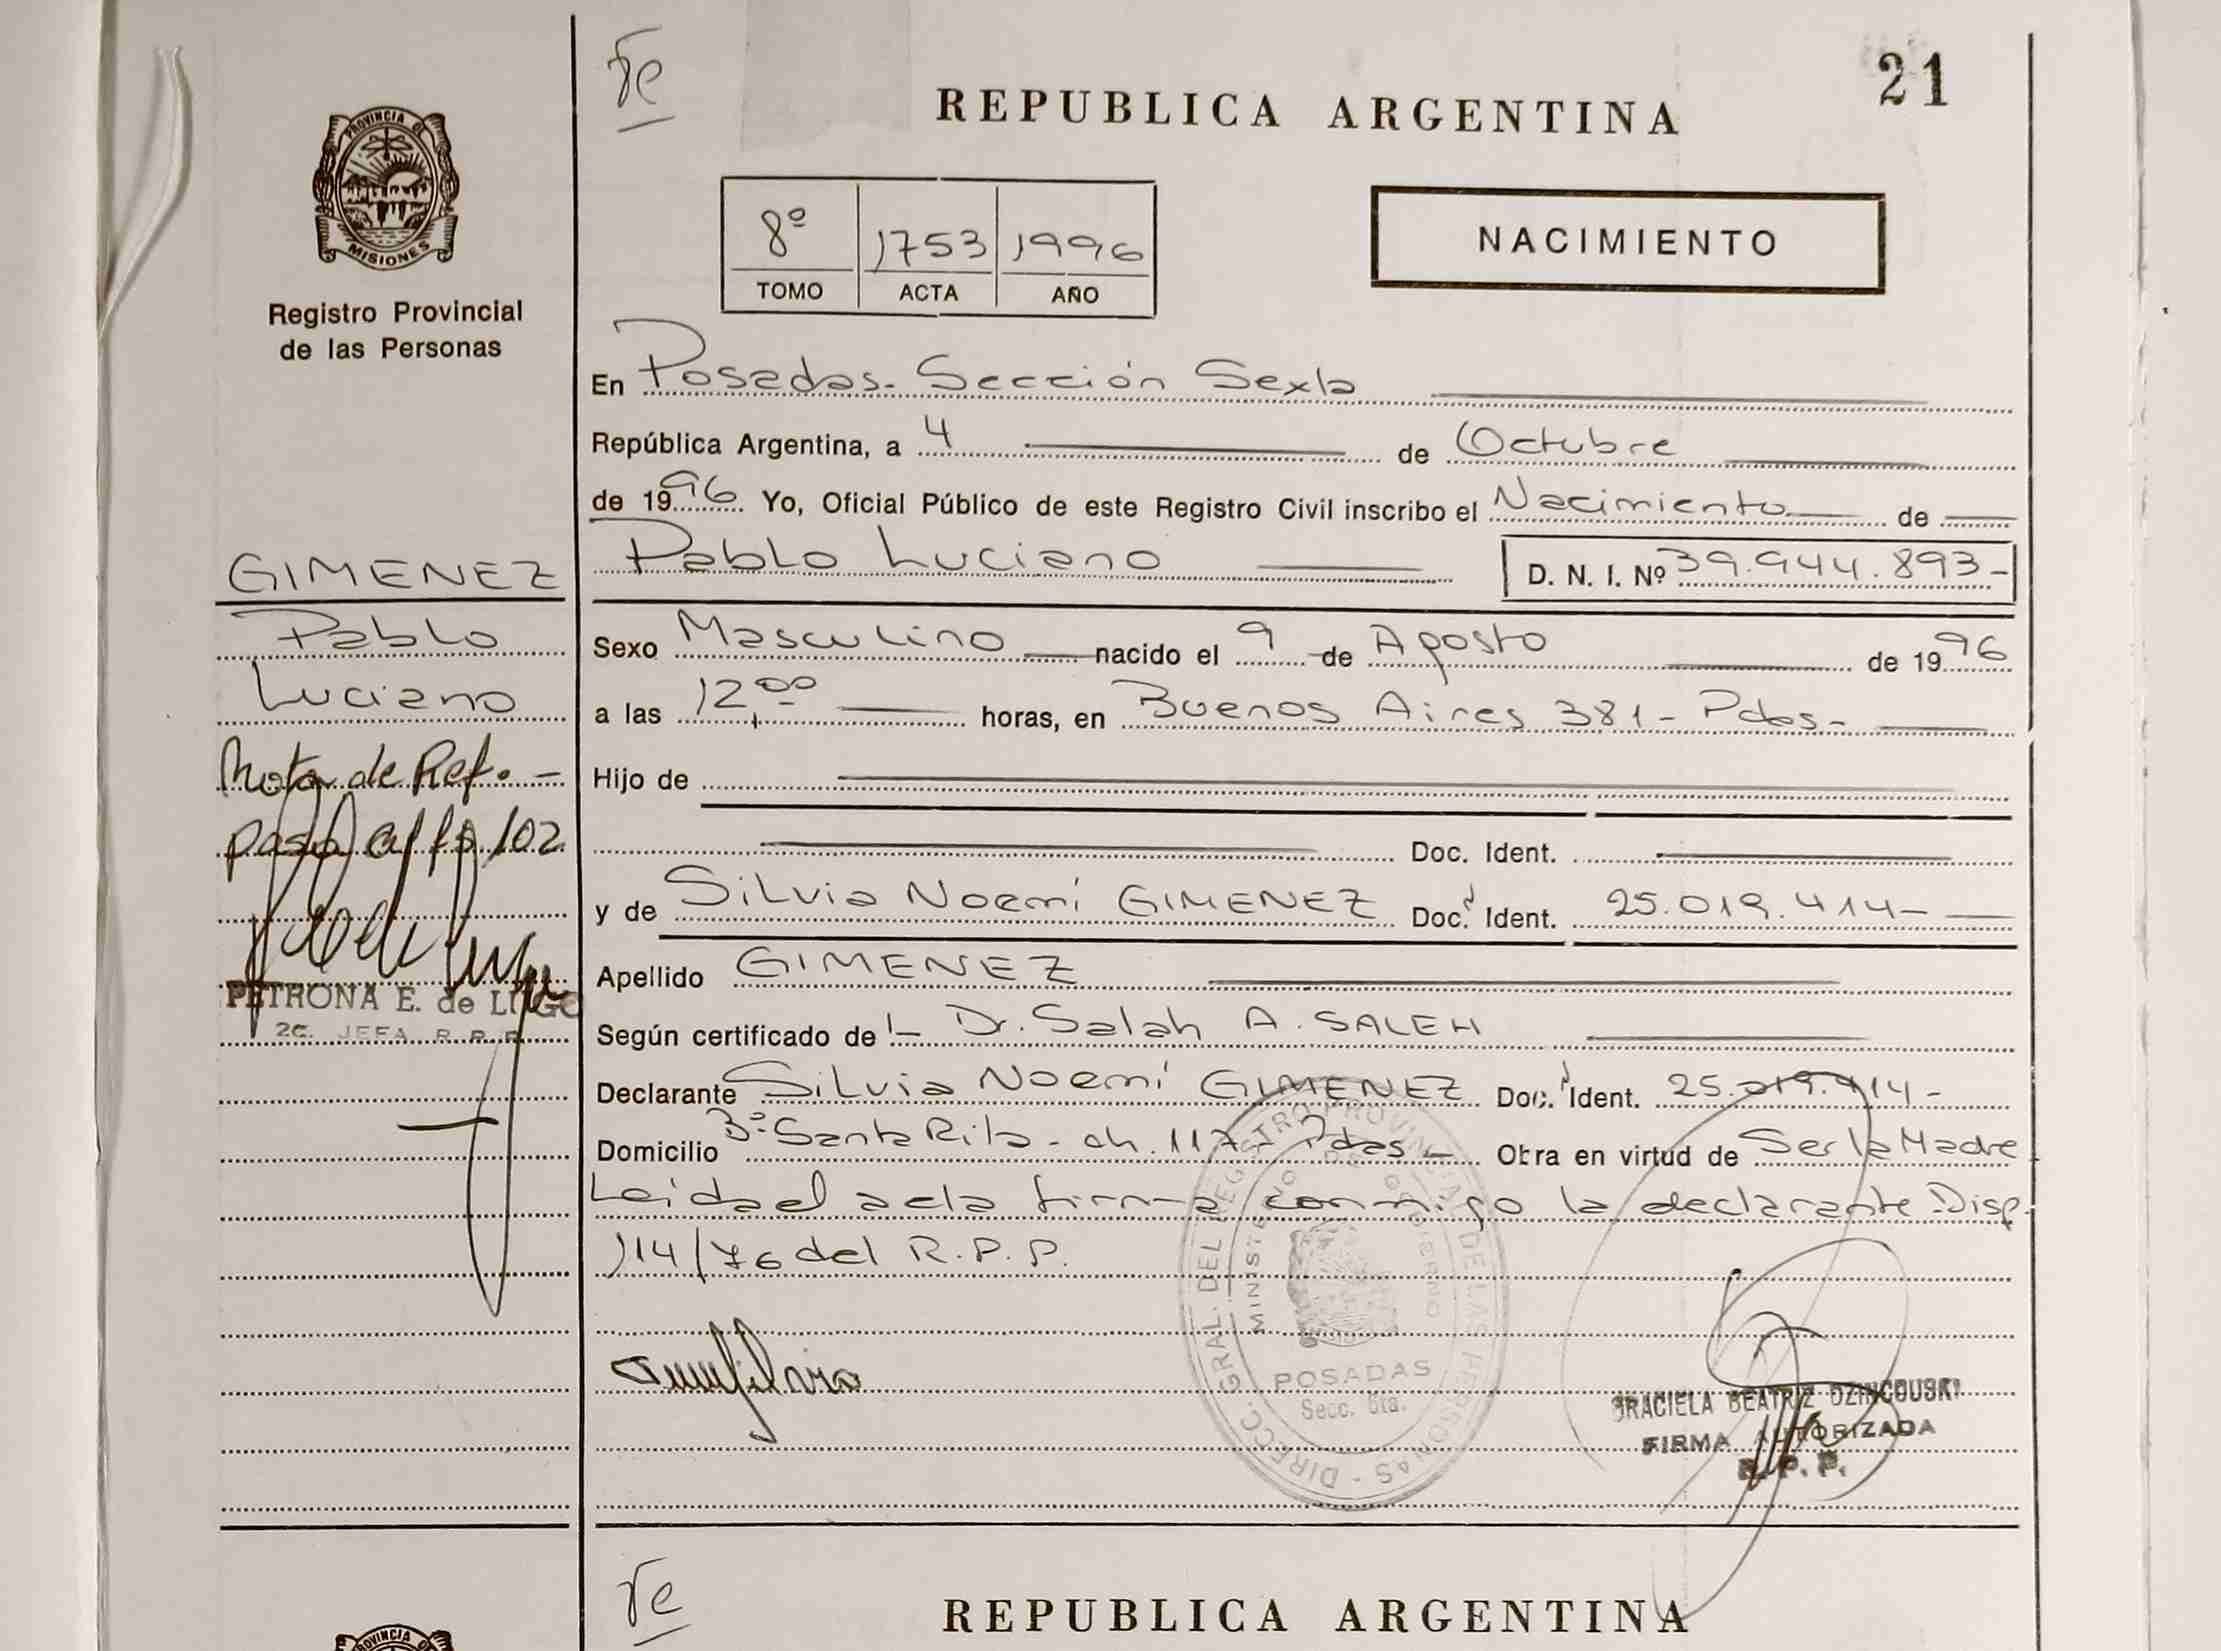 Te
REPUBLICA ARGENTINA
21
PROVINCIA DE
MISIONES
Registro Provincial
de las Personas
8º 1753 1996
TOMO ACTA AÑO
NACIMIENTO
En Posadas - Sección Sexta
República Argentina, a 4 de Octubre
de 1996 Yo, Oficial Público de este Registro Civil inscribo el Nacimiento de
Pablo Luciano D. N. I. Nº 39.944.893-
GIMENEZ
Pablo
Luciano
Nota de Ref. -
pasa al fº 102
PETRONA E. de LUGO
2C. JEFA R. P. P.
Sexo Masculino nacido el 9 de Agosto de 1996
a las 12,00 horas, en Buenos Aires 381 - Pdas -
Hijo de
Doc. Ident.
y de Silvia Noemí GIMENEZ Doc. Ident. 25.019.414-
Apellido GIMENEZ
Según certificado de :- Dr. Salah A. SALEH
Declarante Silvia Noemí GIMENEZ Doc. Ident. 25.019.414-
Domicilio Bº Santa Rita - ch. 117 - Pdas - Obra en virtud de Ser la Madre
Leida el acta firma conmigo la declarante Disp.
114/76 del R.P.P.
DIRECC. GRAL. DEL REGISTRO PROVINCIAL DE LAS PERSONAS
MINISTERIO DE GOBIERNO
POSADAS
Secc. 6ta.
GRACIELA BEATRIZ DZINCOUSKI
FIRMA AUTORIZADA
R. P. P.
Te
REPUBLICA ARGENTINA
PROVINCIA DE